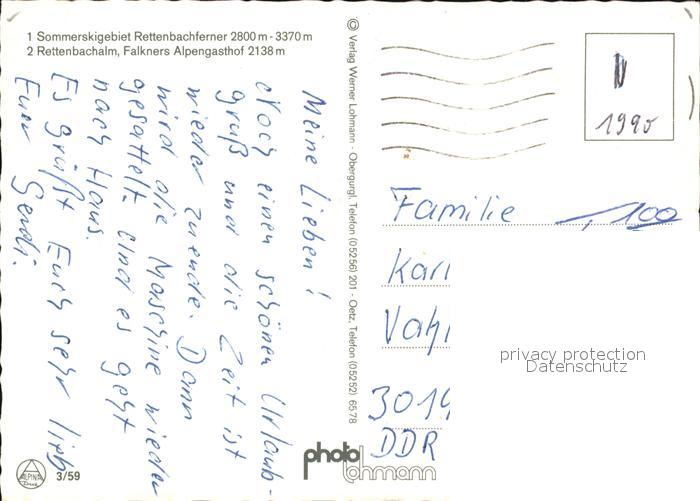 1 Sommerskigebiet Rettenbachferner 2800 m - 3370 m
2 Rettenbachalm, Falkners Alpengasthof 2138 m
Meine Lieben!
Noch einen schönen Urlaub-
gruß und die Zeit ist
wieder zuende. Dann
wird die Maschine wieder
gesattelt. Und es geht
nach Haus.
Es grüßt Euch sehr lieb
Euer
3/59
ALPINA
Druck
© Verlag Werner Lohmann - Obergurgl, Telefon (05256) 201 - Oetz, Telefon (05252) 6578
photo
lohmann
1990
Familie
1,00
Karl
3014
DDR
privacy protection
Datenschutz